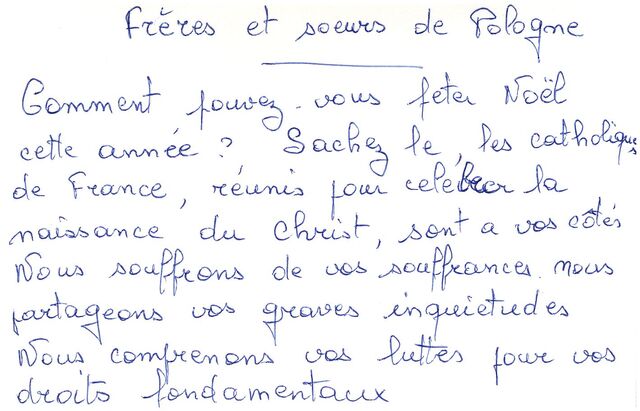 Frères et soeurs de Pologne
Comment pouvez-vous fêter Noël
cette année ? Sachez le, les catholiques
de France, réunis pour celebrer la
naissance du Christ, sont a vos côtés
Nous souffrons de vos souffrances. nous
partageons vos graves inquietudes
Nous comprenons vos luttes pour vos
droits fondamentaux